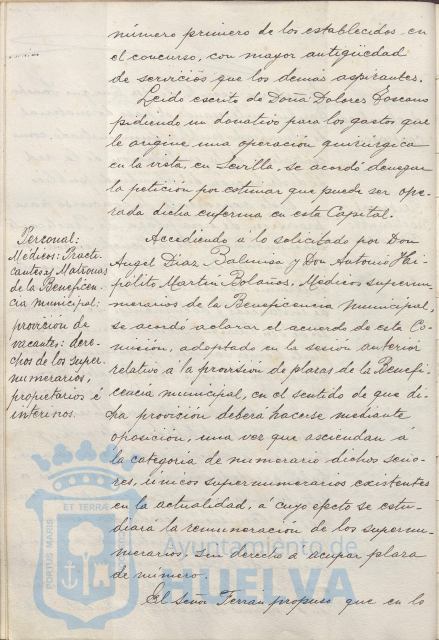 número primero de los establecidos en
el concurso, con mayor antigüedad
de servicios que los demás aspirantes.
Leido escrito de Doña Dolores Toscano
pidiendo un donativo para los gastos que
le origine una operación quirúrgica
en la vista, en Sevilla, se acordó denegar
la petición por estimar que puede ser ope-
rada dicha enferma en esta Capital.
Personal:
Médicos: Practi-
cantes y Matronas
de la Beneficen-
cia municipal:
provisión de
vacantes: dere-
chos de los super-
numerarios,
propietarios é
interinos.
Accediendo á lo solicitado por Don
Angel Diaz Balmisa y Don Antonio Hi-
pólito Martin Bolaños, Médicos supernu-
merarios de la Beneficencia Municipal,
se acordo aclarar el acuerdo de esta Co-
misión, adoptado en la sesión anterior
relativo a la provisión de plazas de la Benefi-
cencia municipal, en el sentido de que di-
cha provisión deberá hacerse mediante
oposición, una vez que asciendan á
la categoria de numerario dichos seño-
res, únicos supernumerarios existentes
en la actualidad, á cuyo efecto se estu-
diará la remuneración de los supernu-
merarios, sin derecho a ocupar plaza
de número.
El Señor Terrán propuso que en lo
PORTUS MARIS
ET TERRAE
Ayuntamiento de
HUELVA